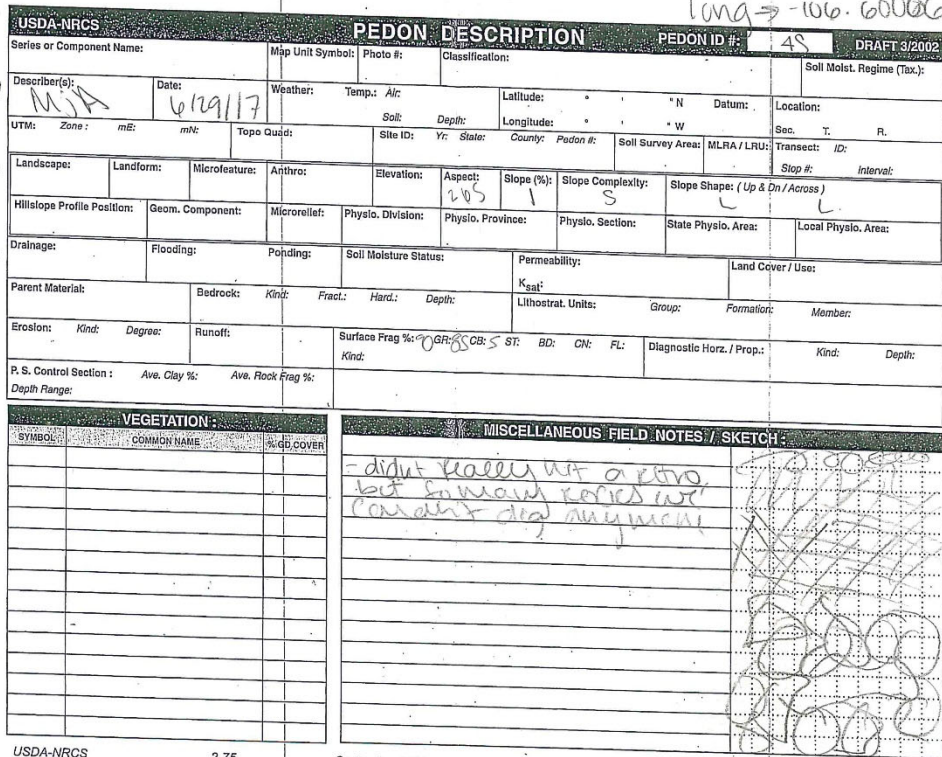 long → -106.
USDA-NRCS PEDON DESCRIPTION PEDON ID #: 4S DRAFT 3/2002
Series or Component Name: Map Unit Symbol: Photo #: Classification: Soil Moist. Regime (Tax.):
Describer(s): MJA Date: 6/29/17 Weather: Temp.: Air: Latitude: ° ' " N Datum: Location:
Soil: Depth: Longitude: ° ' " W Sec. T. R.
UTM: Zone: mE: mN: Topo Quad: Site ID: Yr: State: County: Pedon #: Soil Survey Area: MLRA / LRU: Transect: ID:
Stop #: Interval:
Landscape: Landform: Microfeature: Anthro: Elevation: Aspect: 265 Slope (%): 1 Slope Complexity: S Slope Shape: (Up & Dn / Across) L L
Hillslope Profile Position: Geom. Component: Microrelief: Physio. Division: Physio. Province: Physio. Section: State Physio. Area: Local Physio. Area:
Drainage: Flooding: Ponding: Soil Moisture Status: Permeability: Land Cover / Use:
Ksat:
Parent Material: Bedrock: Kind: Fract.: Hard.: Depth: Lithostrat. Units: Group: Formation: Member:
Erosion: Kind: Degree: Runoff: Surface Frag %: 90 GR: 85 CB: 5 ST: BD: CN: FL: Diagnostic Horz. / Prop.: Kind: Depth:
Kind:
P. S. Control Section: Ave. Clay %: Ave. Rock Frag %:
Depth Range:
VEGETATION: MISCELLANEOUS FIELD NOTES / SKETCH:
SYMBOL COMMON NAME % GD COVER
- didn't really hit a
but so many we
couldn't dig anymore
USDA-NRCS 2-75